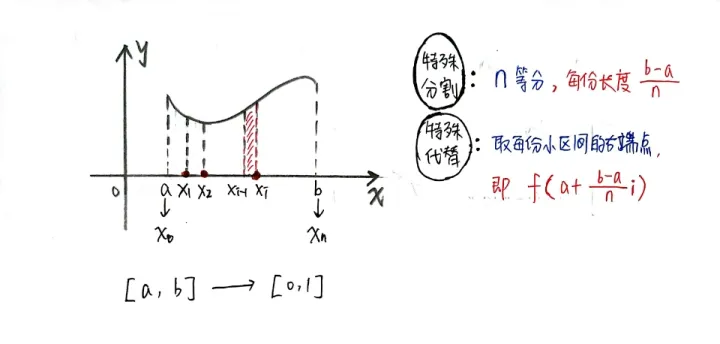 y
0 a x₁ x₂ xᵢ₋₁ xᵢ b x
x₀ xₙ
[a, b] → [0,1]
特殊
分割
: n等分, 每份长度 \frac{b-a}{n}
特殊
代替
: 取每份小区间的右端点,
即 f(a+\frac{b-a}{n}i)